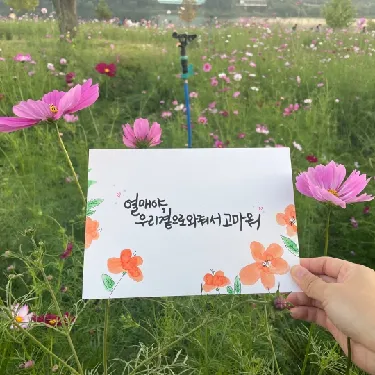 열매야
우리곁으로와줘서고마워